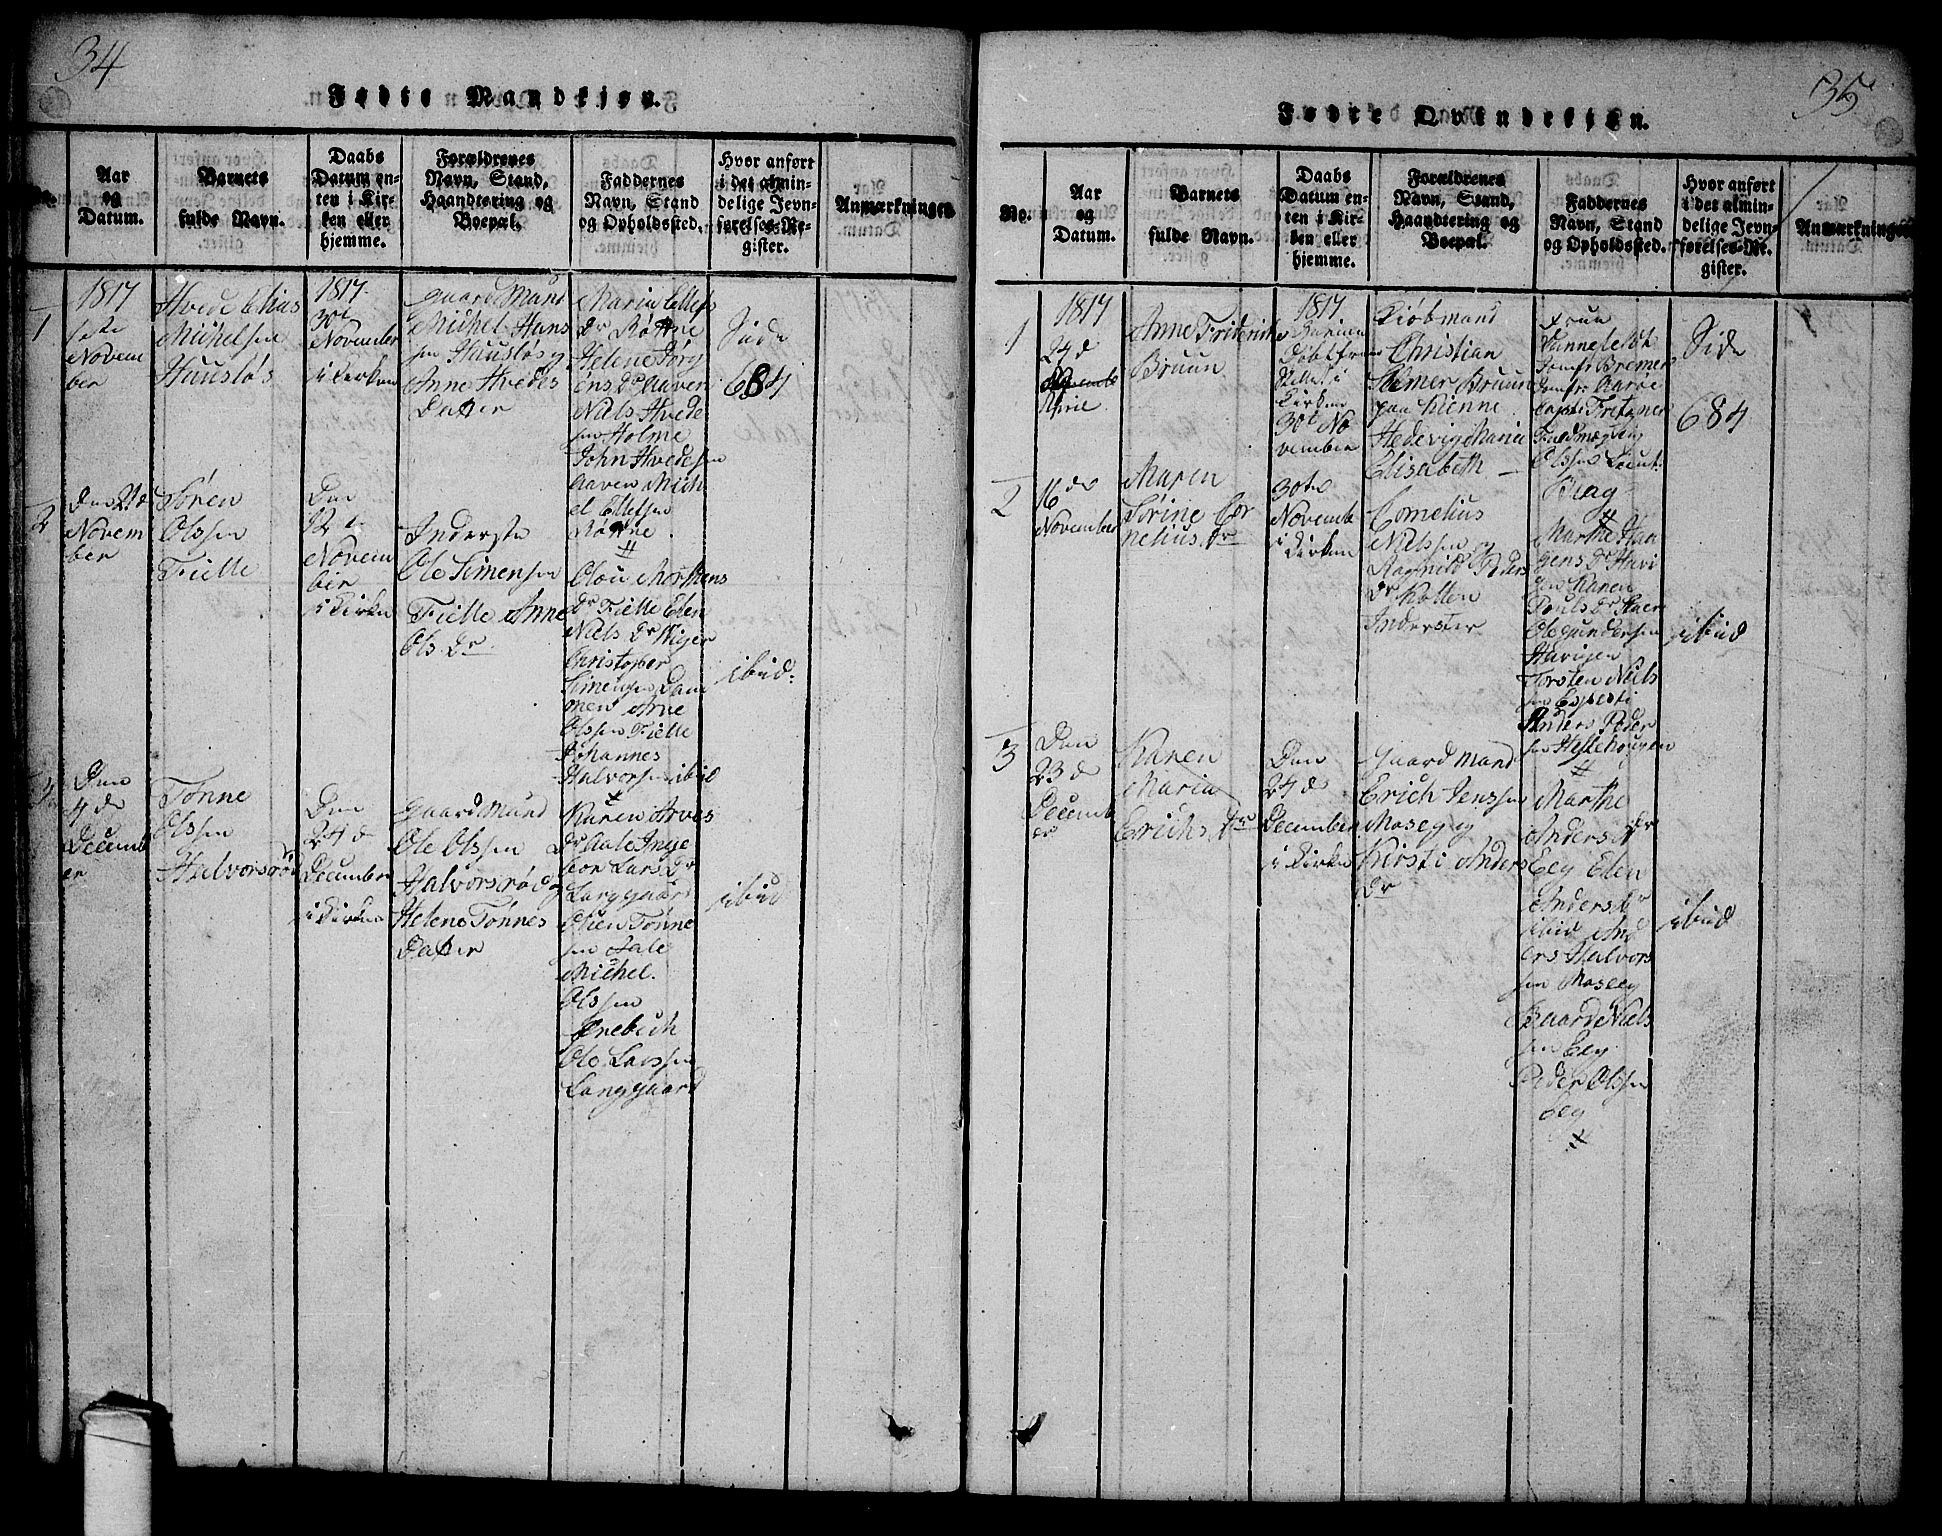 34
Fødte Mandkjøn.
Aar
og
Datum.
Barnets
fulde Navn.
Daabs
Datum en-
ten i Kir-
ken eller
hjemme.
Forældrenes
Navn, Stand,
Haandtering og
Boepæl.
Faddernes
Navn, Stand
og Opholdssted.
Hvor anført
i det almin-
delige Jevn-
førelses-Re-
gister.
Anmærkninger.
1
1817
Novem
ber
Hvede Elias
Michelsen
Hauslös
1817
30te
November
i Kirken
Gaard Mand
Michel Hans
sen Hauslös og
Anne Hvedes
Datter
Maria Ellefs
Dr
Helene Jörg
ens Dr Aaven
Niels Hvede
sen Holme
John Hvedesen
Aaven Mich
el Ellefsen
Side
684
2
Novem
ber
Sören
Olssen
Fielle
Den
12
Novem
ber
i Kirken
Inderste
Ole Simensen
Fielle Anne
Ols Dr
Olou Mortens
Dr Fielle Elen
Niels Dr
Christopher
Simensen Dam
men Arne
Olssen Fielle
Johannes
Halvorsen ibid
ibid:
3
Den
4 de
Decemb
er
Tönne
Olssen
Halvorsröd
Den
24 d
December
i Kirken
Gaard Mand
Ole Olssen
Halvorsröd og
Helene Tönnes
Datter
Karen Arves
Dr Aale Inge
bor Lars Dr
Langgaard
Tönne
sen Aale
Michel
Olssen
Ole Larssen
Langgaard
ibid
35
Fødte Qvindekjøn.
No.
Aar
og
Datum.
Barnets
fulde Navn.
Daabs
Datum en-
ten i Kir-
ken eller
hjemme.
Forældrenes
Navn, Stand,
Haandtering og
Boepæl.
Faddernes
Navn, Stand
og Opholdssted.
Hvor anført
i det almin-
delige Jevn-
førelses-Re-
gister.
Anmærkninger
1
1817
Anne Friderike
Bruun
1817
Kirken
30te No
vember
Kiöbmand
Christian
Bruun
paa Kienne
Hedevig Marie
Elisabeth
Fruu
Jomfr Bremer
Jomfr Aarøe
Capt: Fretzner
Fuldmægtig
Olssen Lieut:
Side
684
2
16 de
November
Maren
Sörine Cor
nelius Dr
30te
Novembe
i Kirken
Cornelius
Nielssen og
Ragnild Peders
Dr Kotten
Inderster
Marthe Haa
gens Dr Havi
gen Karen
Pouls Dr
Ole Gundersen
Havigen
Torsten Niels
sen
Anders Peder
sen Heftehougen
ibid
3
Den
23 de
Decemb
er
Karen
Maria
Erichs Dr
Den
24 de
December
i Kirken
Gaard Mand
Erich Jenssen
Moseg og
Kirsti Anders
Dr
Marthe
Anders Dr
Eeg Elen
Anders Dr
ibid And
ers Halvors
sen Moseeg
Baard Niels
sen Eeg
Peder Olssen
Eeg
ibid